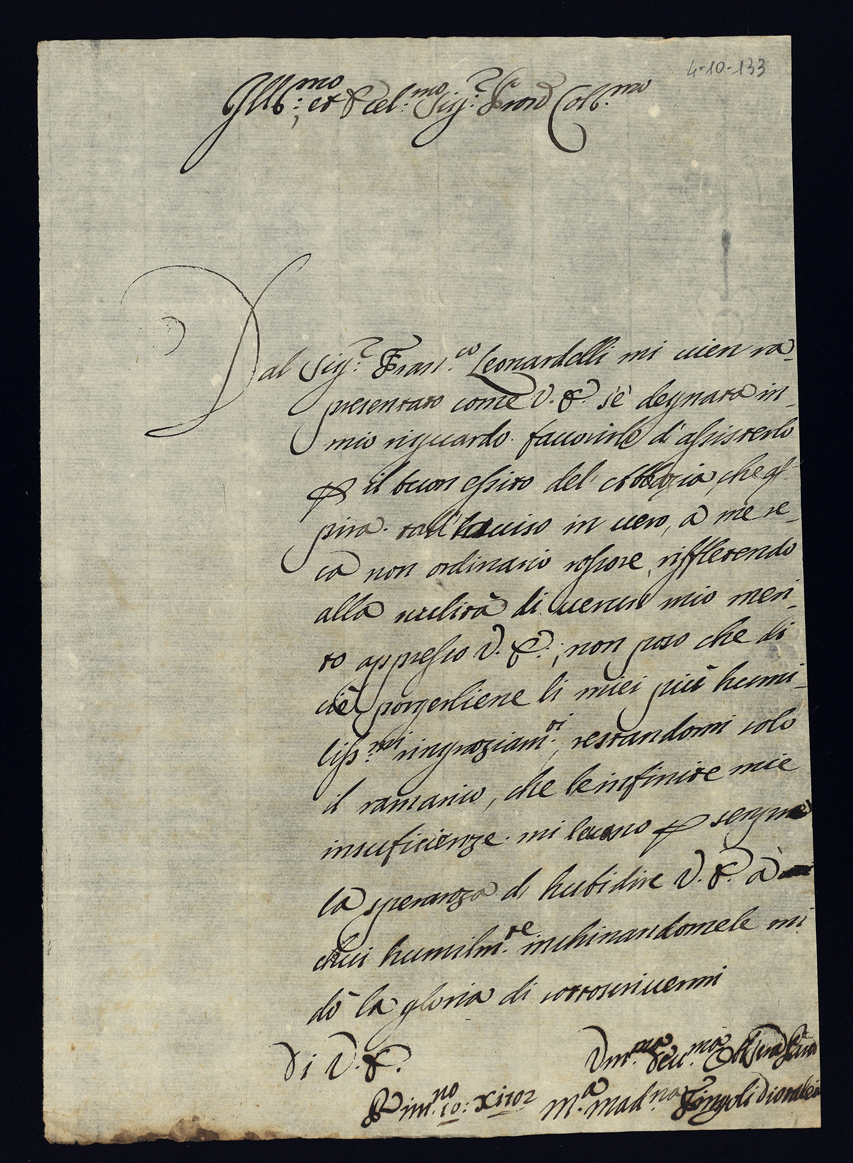 4-10-133
Ill:mo et Ecel:mo Sig:r Pron Coll:mo
Dal Sig:r Fran:co Leonardelli mi vien ra-
presentato come V. E. s'è degnata in
mio riguardo favorirlo d'assisterlo
p il buon essito del che as-
pira tall' auiso in uero, à me re-
ca non ordinario rossore, rifflettendo
alla nulità di uerun mio meri-
to appresso V. E., non posso che di
ciò porgerliene li miei più humi-
liss:mi ringraziam:ti, restandomi solo
il ramarico, che le infinite mie
insuficienze mi leuano p sempre
la speranza di hubidire V. E. à
chui humilm:te inchinandomele mi
dò la gloria di sottoscriuermi
Di V. E.
Um:ma Deu:ma
Rim:no 10: X 1702 M:a Mad:na Tingoli